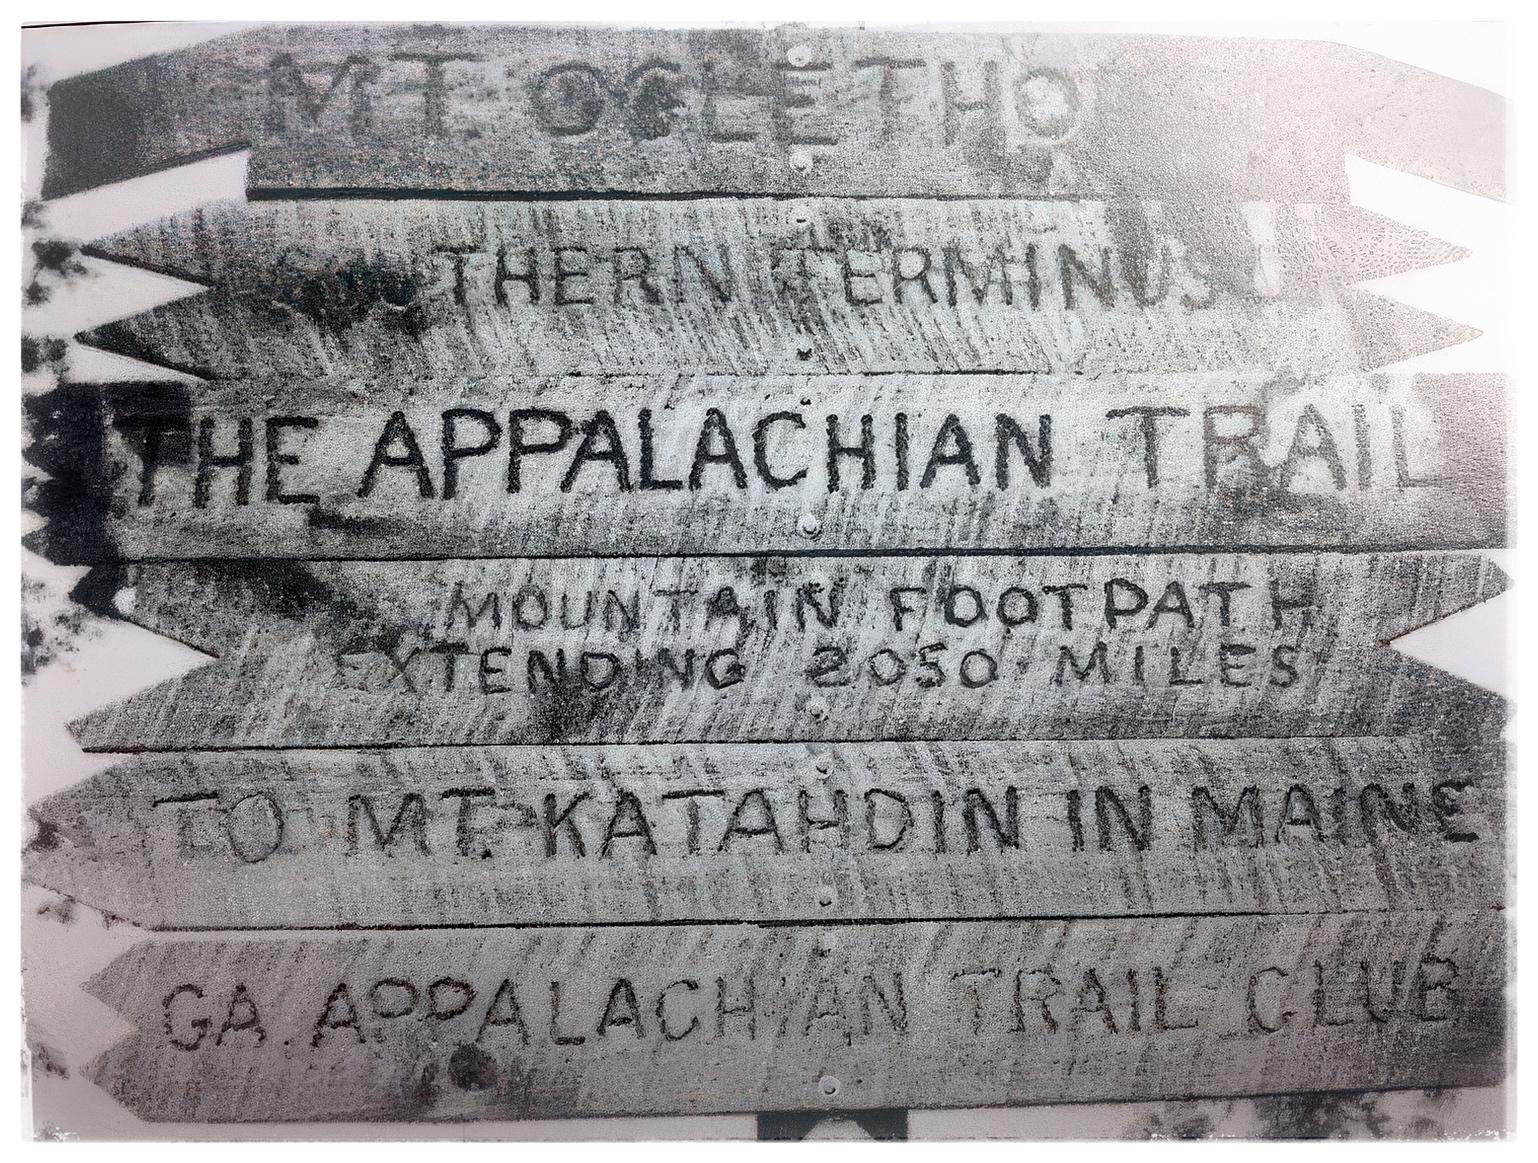 MT. OGLETHO
THERN TERMINUS
THE APPALACHIAN TRAIL
MOUNTAIN FOOTPATH
EXTENDING 2050 MILES
TO MT. KATAHDIN IN MAINE
GA. APPALACHIAN TRAIL CLUB